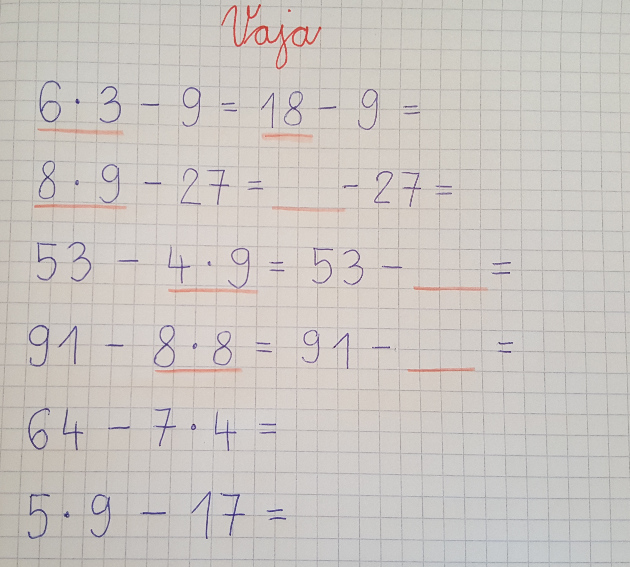 Vaja
6 · 3 - 9 = 18 - 9 =
8 · 9 - 27 = ___ - 27 =
53 - 4 · 9 = 53 - ___ =
91 - 8 · 8 = 91 - ___ =
64 - 7 · 4 =
5 · 9 - 17 =